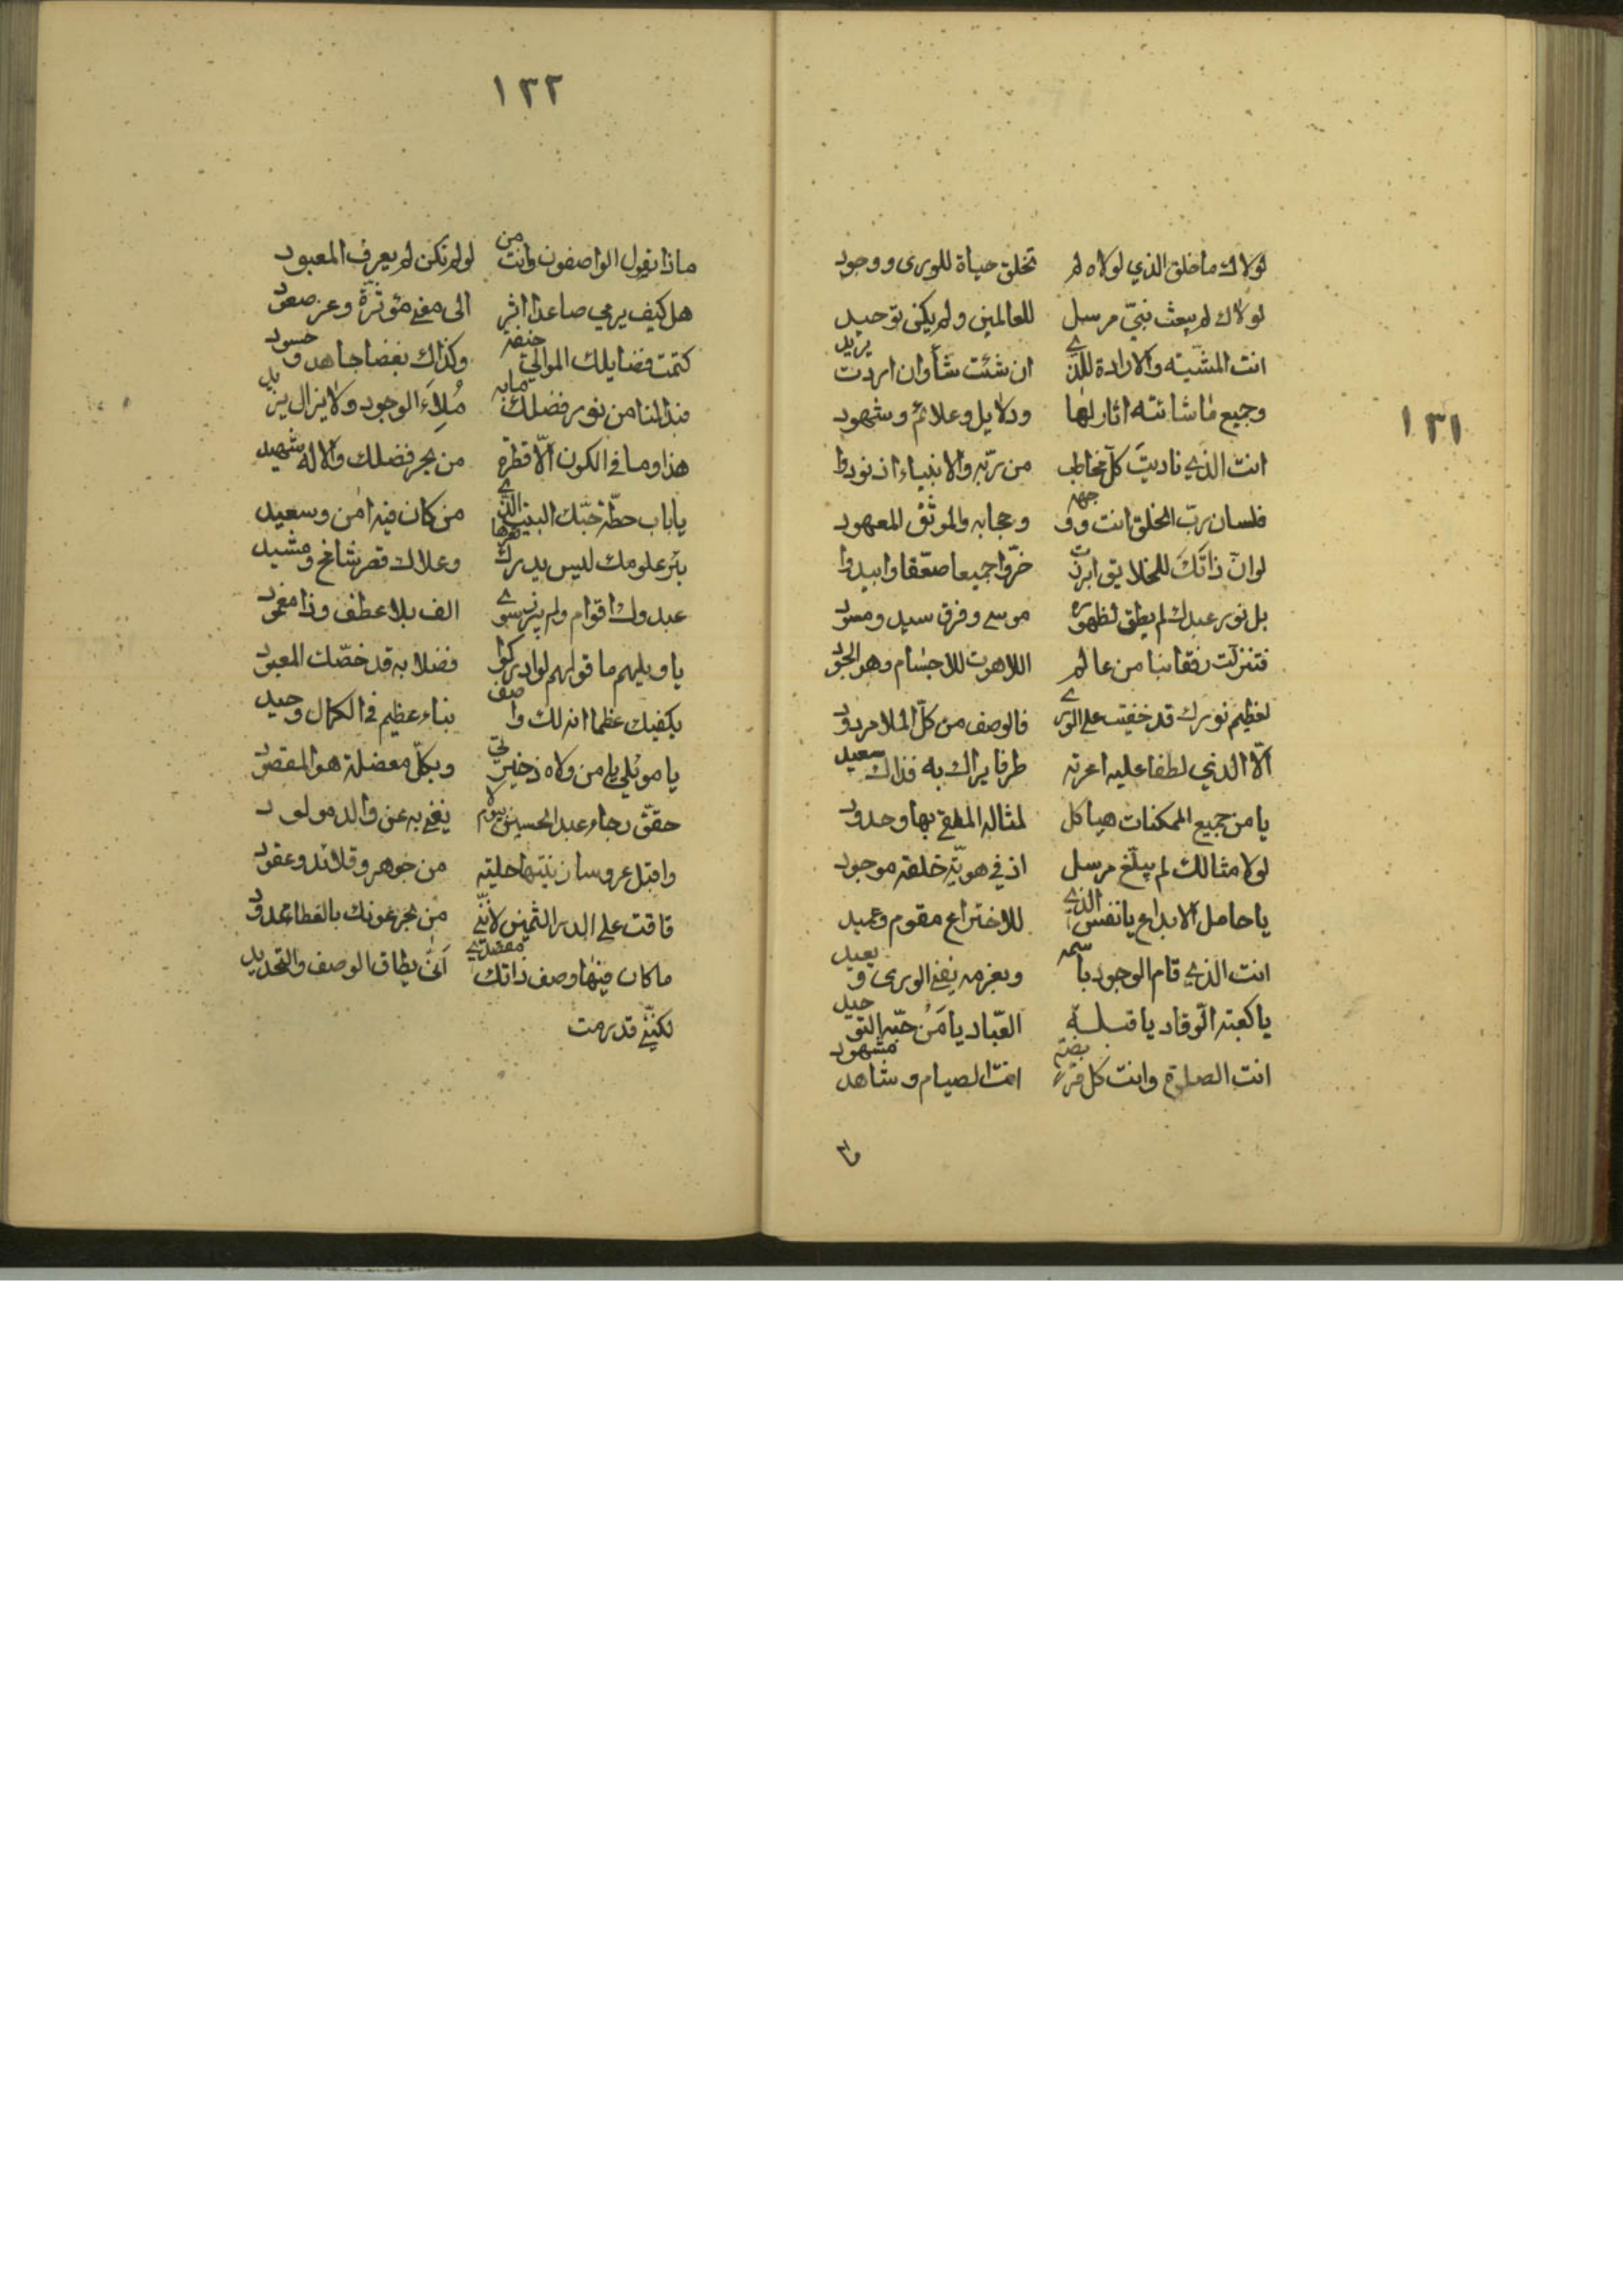 ١٣١
لولاك ما خلق الذي لولاه لم تخلق حياة للورى ووجود
لولاك لم يبعث نبيّ مرسل للعالمين ولم يكن توحيد
انت المشيّته والارادة للذي ان شئت شأ وان اردت يريد
وجميع ما شائته اثار لها ودلايل وعلائم وشهود
انت الذي ناديت كلّ مخاطب من ربّه والانبياء اذ نودوا
فلسان ربّ الخلق انت ووجهه وحجابه والموثق المعهود
لوانّ ذاتك للخلايق ابرزت خرّوا جميعا صعّقا وابيدوا
بل نور عبدك لم يطق لظهوره موسى وفرق سيد ومسود
فتنزلت رفقا بنا من عالم اللاهوت للاجسام وهو الجود
لعظيم نورك قد خفيت على الورى فالوصف من كلّ الملا مردود
الّا الذي لطفا عليه اعرته طرفا يراك به فذاك سعيد
يا من جميع الممكنات هياكل لمثاله الملقى بها وحدود
لولا مثالك لم يبلّغ مرسل اذ في هويّة خلقه موجود
يا حامل الابداع يا نفس الذي للاختراع مقوم وعميد
انت الذي قام الوجود باسمه وبعزمه يفنى الورى ويعيد
يا كعبته الوفاد يا قبلة العبّاد يا من حبّه التوحيد
انت الصلوة وانت كل فريضة انت الصيام وشاهد مشهود
ما
١٣٢
ماذا يقول الواصفون وانت من لولم تكن لم يعرف المعبود
هل كيف يرمي صاعدا اثر الى مغنى مؤثرة وعز صعود
كتمت فضايلك الموالي خيفة وكذاك بغضا جاهد وحسود
فبذا لنا من نور فضلك ما به مُلاَء الوجود ولا يزال يزيد
هذا وما في الكون الّا قطرة من بحر فضلك والاله شهيد
يا باب حطّة حبّك البيت الذي من كان فيه امن وسعيد
بئر علومك ليس يدرك قعرها وعلاك قصر شامخ ومشيد
عبدوك اقوام ولم ينر سوى الف بلا عطف وذا مغمود
يا ويلهم ما قولهم لو ادركوا فضلا به قد خصّك المعبود
يكفيك عظما انه لك واصف بناء عظيم في الكمال وحيد
يا موئلي يا من ولاه ذخيرتي وبكلّ معضلة هو المقصود
حقق رجاء عبد الحسين بيوم لا يغني به عن والد مولود
واقبل عروسا زينتها حليته من جوهر وقلائد وعقود
فاقت على الدر الثمين لأنني من بحر عونك بالعطا ممدود
ما كان فيها وصف ذاتك مقصدي أنّى يطاق الوصف والتحديد
لكنّني قد رمت